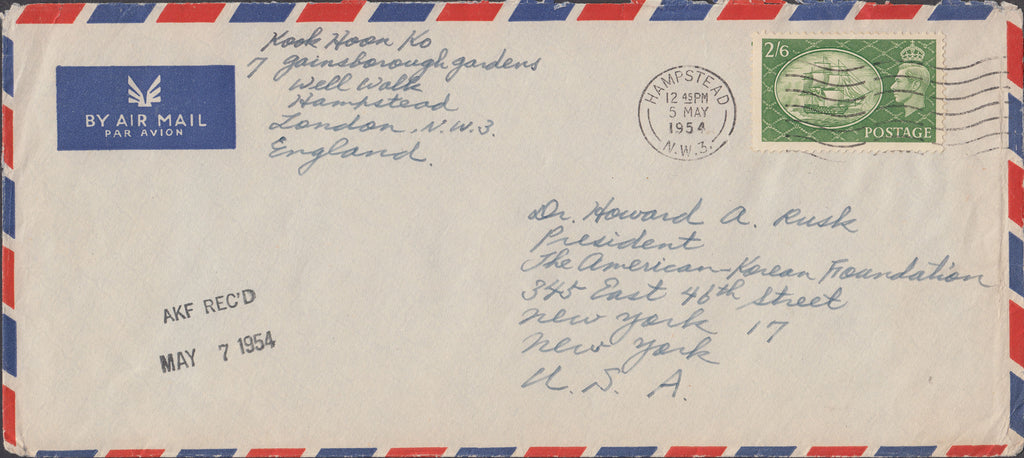 Kook Hoon Ko
7 gainsborough gardens
Well Walk
Hampstead
London, N.W.3.
England.
BY AIR MAIL
PAR AVION
HAMPSTEAD
12 45 PM
5 MAY
1954
N.W.3.
2/6
POSTAGE
Dr. Howard A. Rusk
President
The American-Korean Foundation
345 East 46th Street
New York 17
New York
U. S. A.
AKF REC'D
MAY 7 1954